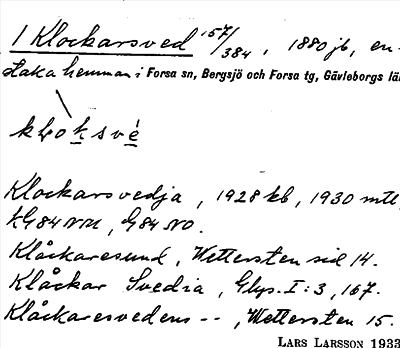 1 Klockarsved 157/384, 1880 jb, en-
staka hemman i Forsa sn, Bergsjö och Forsa tg, Gävleborgs lä
Klockarsvedja, 1928 kb, 1930 mtl
G84NV, G84NO.
Klåckaresund, Wettersten sid 14.
Klåckar Svedia, Glys. I:3, 167.
Klåckaresvedens --, Wettersten 15.
LARS LARSSON 1933